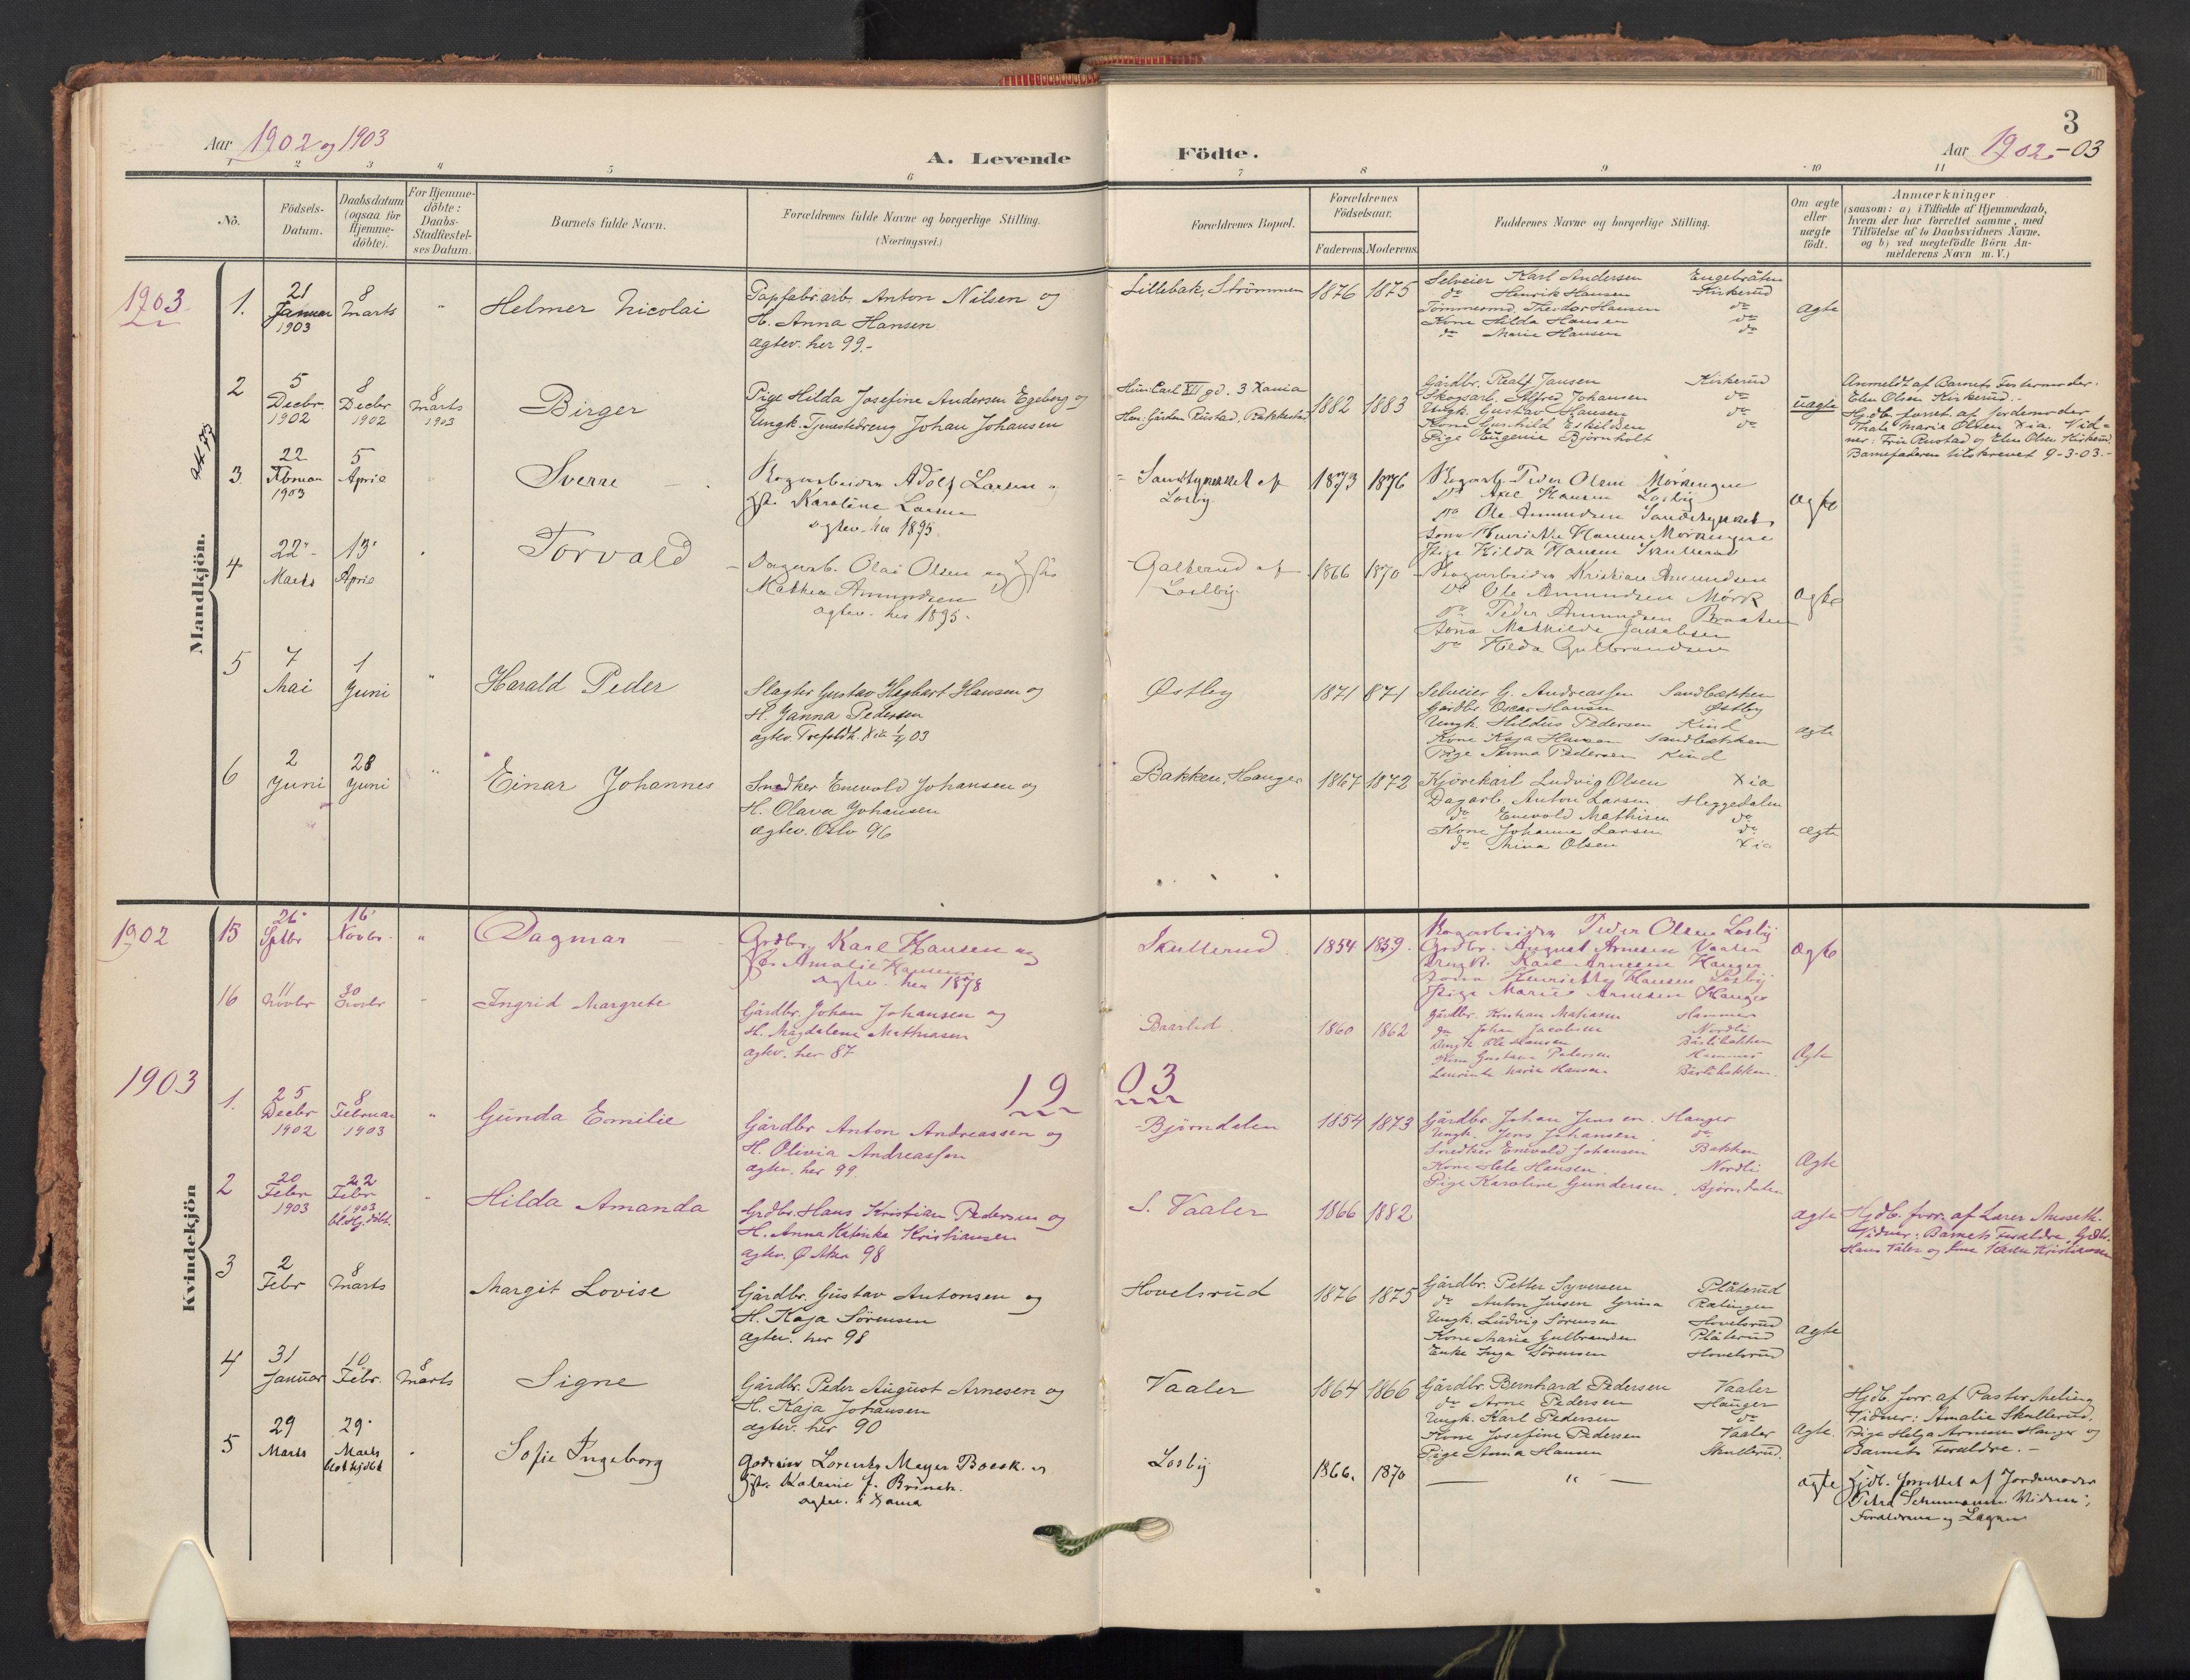 Aar 1902 og 1903
A. Levende Födte.
3
Aar 1902-03
1 2 3 4 5 6 7 8 9 10 11
No.
Födsels-Datum.
Daabsdatum (ogsaa för Hjemme-döbte).
For Hjemme-döbte: Daabs-Stadfæstel-ses Datum.
Barnets fulde Navn.
Forældrenes fulde Navne og borgerlige Stilling. (Næringsvei.)
Forældrenes Bopæl.
Forældrenes Födselsaar.
Faderens. Moderens.
Faddernes Navne og borgerlige Stilling.
Om ægte eller uægte födt.
Anmærkninger (saasom: a) i Tilfælde af Hjemmedaab, hvem der har forrettet samme, med Tilföielse af to Daabsvidners Navne, og b) ved uægtefödte Börn An-melderens Navn m. V.)
Mandkjön.
1903.
1. 21 Januar 1903
8 Marts
"
Helmer Nicolai
Papfabr.arb. Anton Nilsen og
H. Anna Hansen
ægtev. her 99.-
Lillebak, Strömmen
1876 1875
Selveier Karl Andersen Engebråten
do Henrik Hansen Kirkerud
Tömmermd. Theodor Hansen do
Kone Hilda Hansen do
do Marie Hansen do
ægte
2 5 Decbr. 1902
8 Decbr 1902
8 Marts 1903
Birger
Pige Hilda Josefine Andersen Egeberg og
Ungk. Tjenestedreng Johan Johansen
Hun: Carl XII gd. 3 Xania
Han: Gården Rustad,
1882 1883
Gårdbr. Realf Jansen Kirkerud
Skogsarb. Alfred Johansen do
Ungk. Gustav Hansen do
Kone Gunhild Eskildsen do
Pige Eugenie Björnholt
uægte
Anmeldt af Barnets Fostermoder.
Elen Olsen Kirkerud.-
Hjdb. forret af Jordemoder
Thale Marie Olsen Xia. Vid-
ner: Fru Rustad og Elen Olsen Kirkerud.
Barnefaderen tilskrevet 9-3-03.-
3. 22 Februar 1903
5 April
Sverre
Skogarbeider Adolf Larsen og
Hst. Karoline Larsen
ægtev. her 1895.
Sandstykket af
Losby
1873 1876
Skogarb. Peder Olsen Mörkengen
Do Axel Hansen Losby
Do Ole Amundsen Sandstykket
Kona Henriette Hansen Mörkengen
Pige Hilda Hansen Skullerud
ægte
4 22 Marts
13 April
Torvald
Dagarb. Olai Olsen og Hst.
Mathea Amundsen
ægtev. her 1895.
Galterud af
Losby
1866 1870
Skogarbeider Kristian Amundsen
Do Ole Amundsen Mörk
Do Peder Amundsen Braaten
Kona Mathilde Jacobsen
Do Hilda Gulbrandsen
ægte
5 7 Mai
1 Juni
"
Harald Peder
Slagter Gustav Hagbart Hansen og
H. Janna Pedersen
ægtev. Trefoldh. Xia 03
Østby
1871 871
Selveier G. Andreassen Sandbækken
Gårdbr. Oscar Hansen Østby
Ungk. Hildus Pedersen Kind
Kone Kaja Hansen Sandbækken
Pige Anna Pedersen Kind
ægte
6 2 Juni
28 Juni
"
Einar Johannes
Snedker Enevold Johansen og
H. Olava Johansen
ægtev. Oslo 96
Bakken, Hauger
1867 1872
Kjörekarl Ludvig Olsen Xia
Dagarb. Anton Larsen Heggedalen
do Enevold Mathisen do
Kone Johanne Larsen do
do Mina Olsen Xia
ægte
Kvindekjön
1902
15 26 Sptbr
16 Novbr.
"
Dagmar
Grdbr. Karl Hansen og
Hst. Amalie Hansen
ægtev. her 1878
Skullerud
1854 1859.
Skogarbeider Peder Olsen Losby
Grdbr. August Arnesen Vaaler
Ungk. Karl Arnesen Hauger
Kona Henriette Hansen Losby
Pige Marie Arnesen Hauger
ægte
16 11 Novbr
30 Novbr
Ingrid Margrete
Gårdbr. Johan Johansen og
H. Magdalene Mathiasen
ægtev. her 87
Baarlid
1860 1862
Gårdbr. Kristian Mathiasen Hammer
do Johan Jacobsen Nordli
Ungk. Ole Hansen Bårlibakken
Kone Gustava Pedersen Hammer
Laurentse Marie Hansen Bårlibakken.
Ægte.
1903
1903
1. 25 Decbr 1902
8 Februar 1903
"
Gunda Emilie
Gårdbr Anton Andreassen og
H. Olivia Andreassen
ægtev. her 99.
Bjørndalen
1854 1873
Gårdbr. Johan Jensen. Hauger
Ungk. Jens Johansen. do
Snedker Enevold Johansen Bakken
Kone Hele Hansen. Nordli
Pige Karoline Gundersen, Bjørndalen
Ægte
2 20 Febr 1903
22 Febr 1903
Hilda Amanda
Grdbr. Hans Kristian Pedersen og
H. Anna Katinka Kristiansen
ægtev. Ø Aker 98
S. Vaaler
1866 1882
ægte
Hjdb. forr. af Lærer Ausseth.
Vidner: Barnets Forældre, Grdbr.
Hans Våler og Karen Kristiansen
3 2 Febr
8 Marts
Margit Lovise
Gårdbr. Gustav Antonsen og
H. Kaja Sörensen
ægtev. her 98
Hovelsrud
1876 1875
Gårdbr. Petter Syversen Plåterud
do Anton Jensen Grina Rælingen
Ungk. Ludvig Sörensen Hovelsrud
Kone Marie Gulbrandsen Plåterud
Enke Inga Sörensen Hovelsrud
ægte
4 31 Januar
10 Febr.
8 Marts
Signe
Gårdbr. Peder August Arnesen og
H. Kaja Johansen
ægtev. her 90
Vaaler
1864 1866
Gårdbr. Bernhard Pedersen Vaaler
do Arne Pedersen Hauger
Ungk. Karl Pedersen do
Kone Josefine Pedersen Vaaler
Pige Anna Hansen Skullerud.
Ægte.
Hjdb. forr. af Pastor Meling
Vidner: Amalie Skullerud.
Pige Helga Arnesen Hauger og
Barnets Forældre.-
5 29 Marts
29 Marts
blot hjdbt
Sofie Ingeborg
Godseier Lorentz Meyer Boeck og
Hst. Katrine f. Brinch.
ægtev. i Xania
Losby
1866. 1870
— " —
ægte
Hjdb. forrettet af Jordemoder
Petra Schumann Vidner:
Forældrene og Lægen